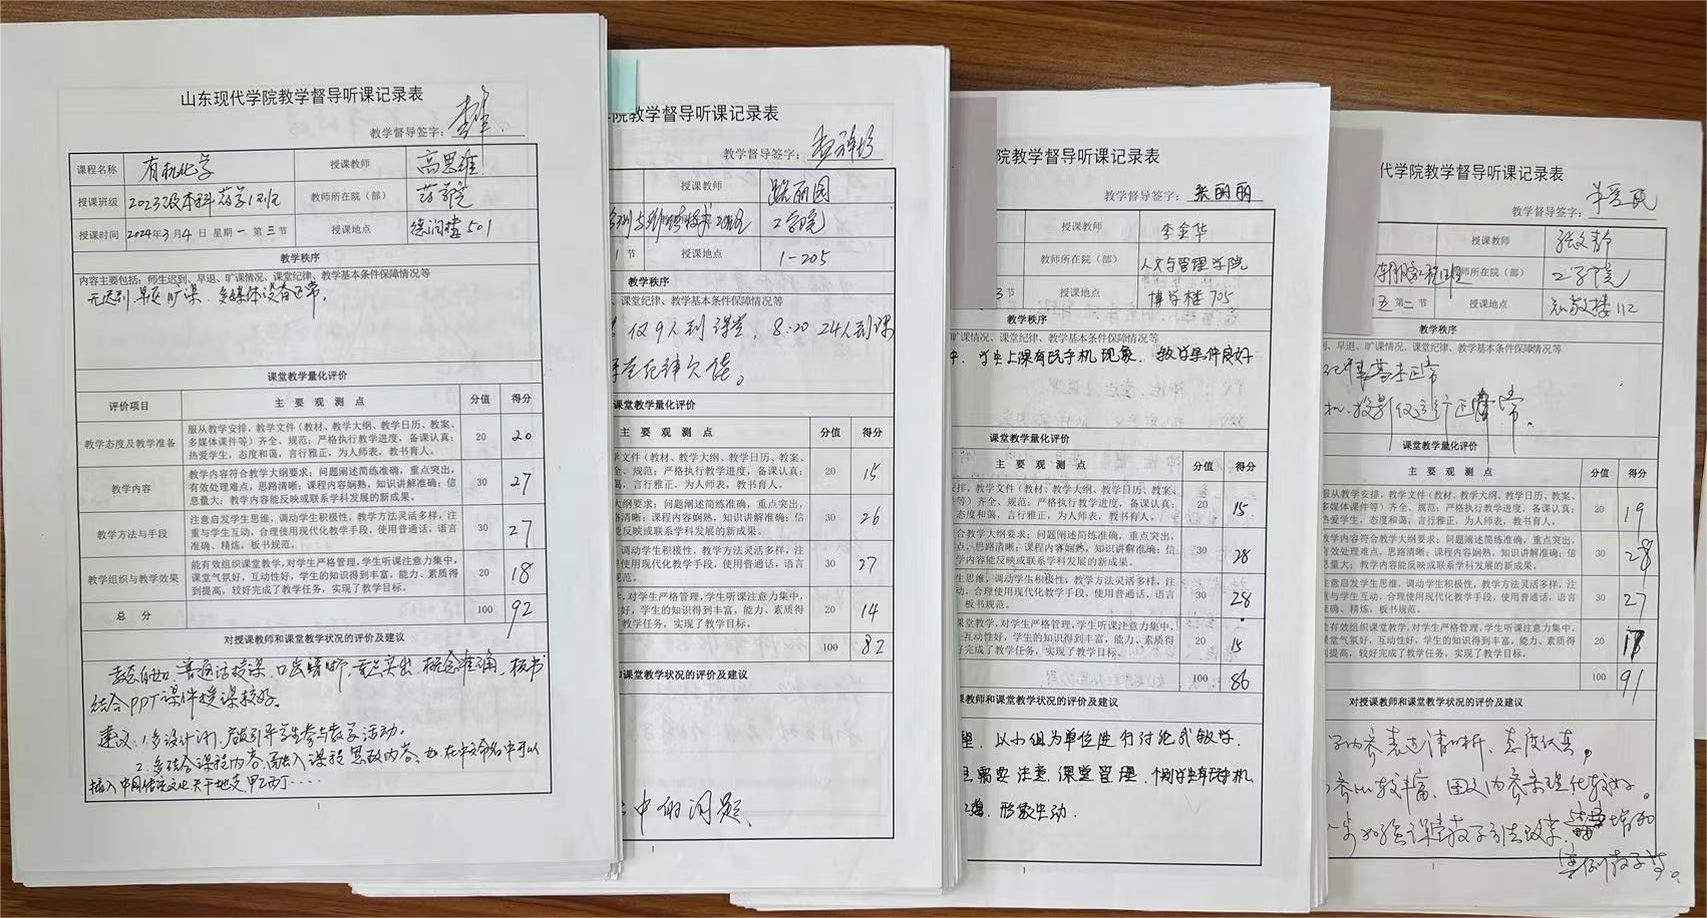 山东现代学院教学督导听课记录表
教学督导签字:
课程名称 有机化学 授课教师 高思雅
授课班级 2023级本科药学1班 教师所在院(部) 药学院
授课时间 2024年3月4日 星期一 第三节 授课地点 德润楼501
教学秩序
内容主要包括:师生迟到、早退、旷课情况、课堂纪律、教学基本条件保障情况等
无迟到、早退、旷课、多媒体设备正常。
课堂教学量化评价
评价项目 主 要 观 测 点 分值 得分
教学态度及教学准备 服从教学安排,教学文件(教材、教学大纲、教学日历、教案、 20 20
多媒体课件等)齐全、规范;严格执行教学进度,备课认真;
热爱学生,态度和蔼,言行雅正,为人师表,教书育人。
教学内容 教学内容符合教学大纲要求;问题阐述简练准确,重点突出, 30 27
有效处理难点,思路清晰;课程内容娴熟,知识讲解准确;信
息量大;教学内容能反映或联系学科发展的新成果。
教学方法与手段 注意启发学生思维,调动学生积极性,教学方法灵活多样,注 30 27
重与学生互动,合理使用现代化教学手段,使用普通话,语言
准确、精炼,板书规范。
教学组织与教学效果 能有效组织课堂教学,对学生严格管理,学生听课注意力集中, 20 18
课堂气氛好,互动性好,学生的知识得到丰富,能力、素质得
到提高,较好完成了教学任务,实现了教学目标。
总 分 100 92
对授课教师和课堂教学状况的评价及建议
普通话授课,口齿清晰,重点突出,概念准确,板书
结合PPT课件授课较好。
建议:1.多设计 引导学生参与教学活动。
2.多结合课程内容,融入课程思政内容,如在中文命名中可以
插入中国传统文化天干地支,甲乙丙丁……
1
院教学督导听课记录表
教学督导签字:
授课教师
工学院
1节 授课地点 1-205
教学秩序
、课堂纪律、教学基本条件保障情况等
仅9人到课堂,8:20 24人到课
纪律欠佳。
课堂教学量化评价
主 要 观 测 点 分值 得分
学文件(教材、教学大纲、教学日历、教案、 20 15
全、规范;严格执行教学进度,备课认真;
蔼,言行雅正,为人师表,教书育人。
大纲要求;问题阐述简练准确,重点突出, 30 26
路清晰;课程内容娴熟,知识讲解准确;信
能反映或联系学科发展的新成果。
,调动学生积极性,教学方法灵活多样,注 30 27
使用现代化教学手段,使用普通话,语言
规范。
学,对学生严格管理,学生听课注意力集中, 20 14
好,学生的知识得到丰富,能力、素质得
教学任务,实现了教学目标。
100 82
和课堂教学状况的评价及建议
中的问题、
院教学督导听课记录表
教学督导签字:张丽丽
授课教师 李金华
教师所在院(部) 人文与管理学院
3节 授课地点 博学楼705
教学秩序
旷课情况、课堂纪律、教学基本条件保障情况等
学生上课有玩手机现象,教学条件良好
课堂教学量化评价
主 要 观 测 点 分值 得分
安排,教学文件(教材、教学大纲、教学日历、教案、 20 15
等)齐全、规范;严格执行教学进度,备课认真;
态度和蔼,言行雅正,为人师表,教书育人。
合教学大纲要求;问题阐述简练准确,重点突出, 30 28
点,思路清晰;课程内容娴熟,知识讲解准确;信
学内容能反映或联系学科发展的新成果。
生思维,调动学生积极性,教学方法灵活多样,注 30 28
,合理使用现代化教学手段,使用普通话,语言
板书规范。
课堂教学,对学生严格管理,学生听课注意力集中, 20 15
,互动性好,学生的知识得到丰富,能力、素质得
完成了教学任务,实现了教学目标。
100 86
师和课堂教学状况的评价及建议
以小组为单位进行讨论式教学.
需要注意课堂管理,个别学生玩手机
形象生动.
代学院教学督导听课记录表
教学督导签字:
授课教师 张文静
师所在院(部) 工学院
五 第二节 授课地点 弘毅楼112
教学秩序
、旷课情况、课堂纪律、教学基本条件保障情况等
纪律基本正常
机、投影仪运行正常。
课堂教学量化评价
主 要 观 测 点 分值 得分
服从教学安排,教学文件(教材、教学大纲、教学日历、教案、 20 19
多媒体课件等)齐全、规范;严格执行教学进度,备课认真;
热爱学生,态度和蔼,言行雅正,为人师表,教书育人。
教学内容符合教学大纲要求;问题阐述简练准确,重点突出, 30 28
有效处理难点,思路清晰;课程内容娴熟,知识讲解准确;信
息量大;教学内容能反映或联系学科发展的新成果。
注意启发学生思维,调动学生积极性,教学方法灵活多样,注 30 27
重与学生互动,合理使用现代化教学手段,使用普通话,语言
准确、精炼,板书规范。
有效组织课堂教学,对学生严格管理,学生听课注意力集中, 20
课堂气氛好,互动性好,学生的知识得到丰富,能力、素质得
到提高,较好完成了教学任务,实现了教学目标。
100 91
对授课教师和课堂教学状况的评价及建议
内容表达清晰、态度认真,
比较丰富、
步加强课堂教学方法改革, 增加
案例教学等。